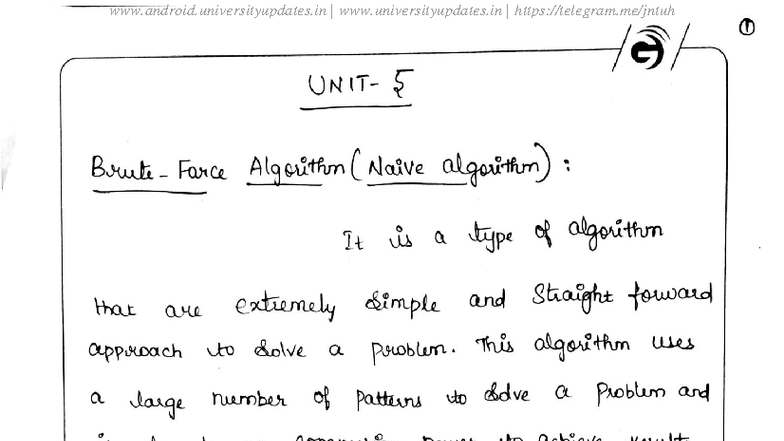 www.android.universityupdates.in | www.universityupdates.in | https://telegram.me/jntuh
1
UNIT-5
Brute-Force Algorithm (Naive algorithm) :
It is a type of algorithm
that are extremely simple and Straight forward
approach to solve a problem. This algorithm uses
a large number of patterns to solve a problem and
power to achieve result